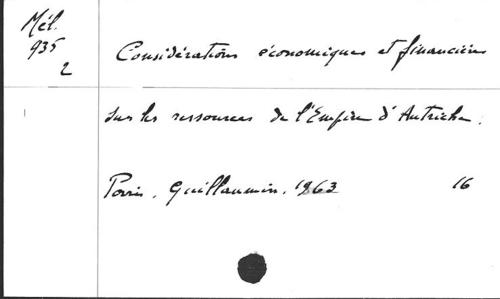 Mél.
935
2
Considérations économiques et financières
sur les ressources de l'Empire d'Autriche.
Paris, Guillaumin, 1863 16